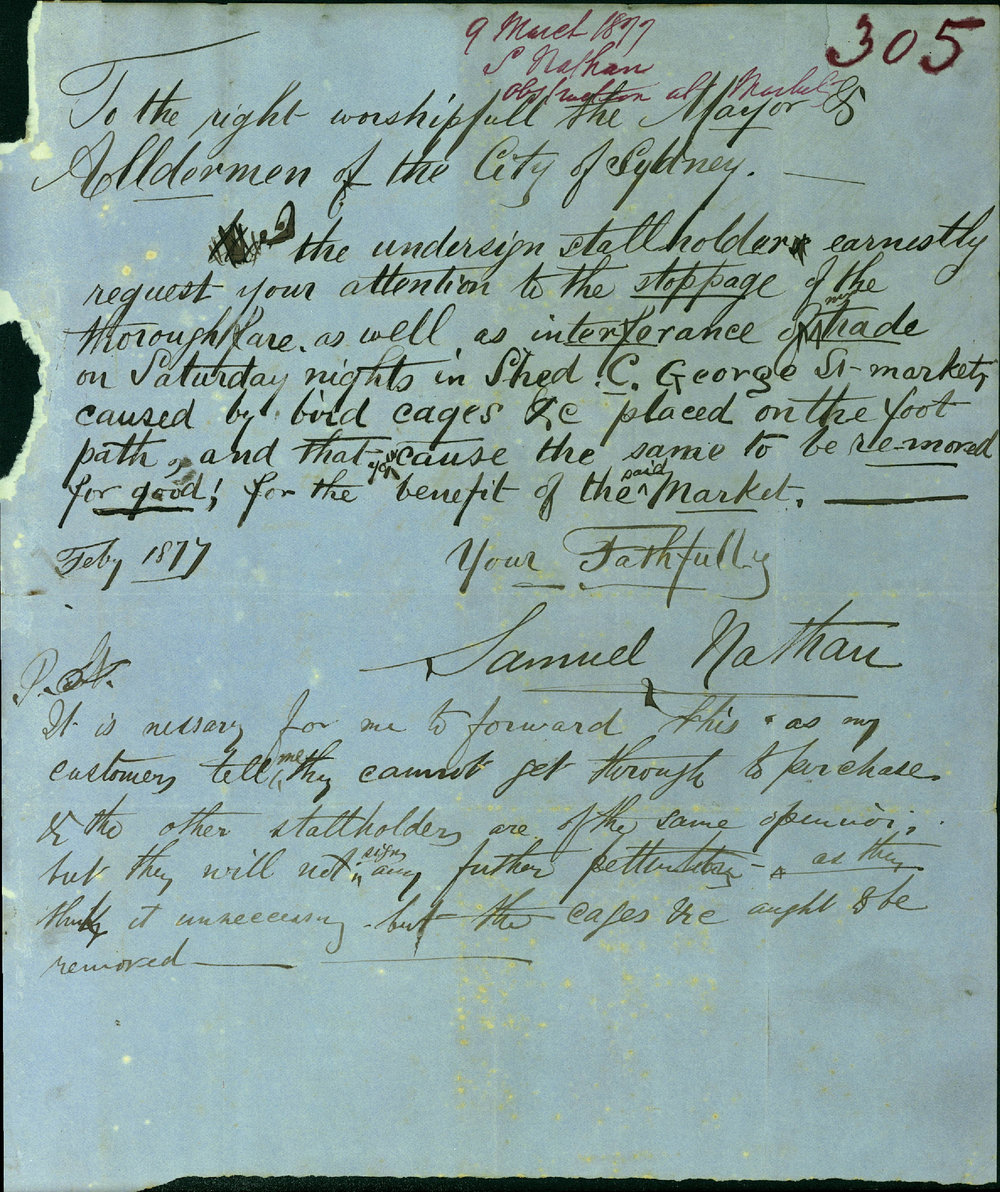 305
9 March 1877
S Nathan
Obstruction at Market
To the right worshipfull the Mayor &
Alldermen of the City of Sydney.
the undersign stallholder earnestly
request your attention to the stoppage of the
thoroughfare. as well as interferance of my trade
on Saturday nights in Shed. C. George St-market,
caused by bird cages &c placed on the foot
path, and that you cause the same to be re-moved
for good; for the benefit of the said Market.
Feby 1877
Your Fathfully
Samuel Nathan
P. St.
It is nessary for me to forward this as my
customers tell me they cannot get through to purchase
& the other stallholders are of the same openion,
but they will not sign any further pettention as they
think it unneccessary but the cages &c aught to be
removed